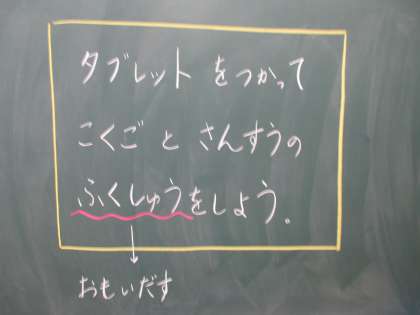 タブレットをつかって
こくごとさんすうの
ふくしゅうをしよう。
おもいだす